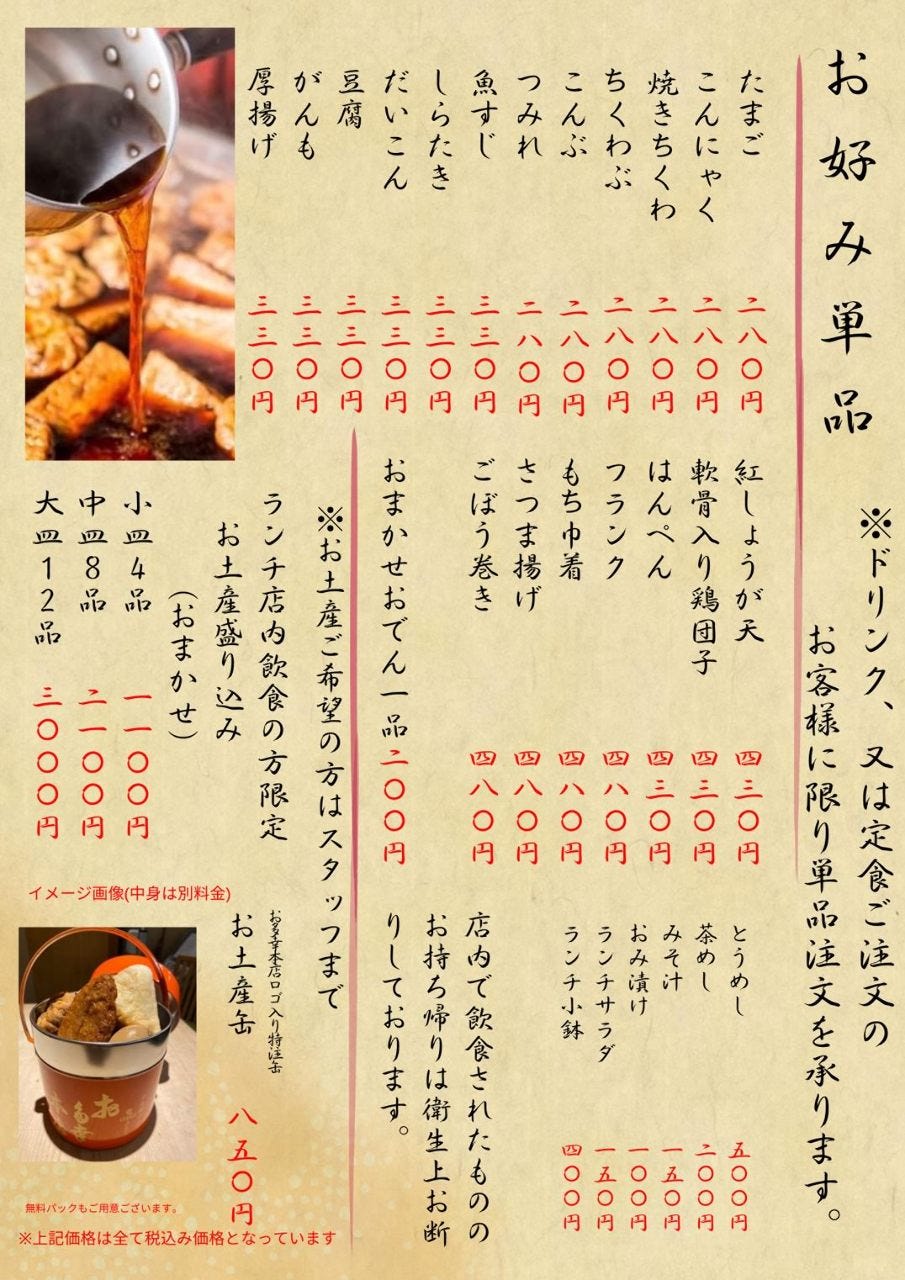 お好み単品
※ドリンク、又は定食ご注文の
お客様に限り単品注文を承ります。
たまご 二八〇円
こんにゃく 二八〇円
焼きちくわ 二八〇円
ちくわぶ 二八〇円
こんぶ 二八〇円
つみれ 二八〇円
魚すじ 三三〇円
しらたき 三三〇円
だいこん 三三〇円
豆腐 三三〇円
がんも 三三〇円
厚揚げ 三三〇円
紅しょうが天 四三〇円
軟骨入り鶏団子 四三〇円
はんぺん 四三〇円
フランク 四八〇円
もち巾着 四八〇円
さつま揚げ 四八〇円
ごぼう巻き 四八〇円
おまかせおでん一品 二〇〇円
とうめし 五〇〇円
茶めし 二〇〇円
みそ汁 一五〇円
おみ漬け 一〇〇円
ランチサラダ 一五〇円
ランチ小鉢 四〇〇円
店内で飲食されたものの
お持ち帰りは衛生上お断
りしております。
※お土産ご希望の方はスタッフまで
ランチ店内飲食の方限定
お土産盛り込み
(おまかせ)
小皿4品 一一〇〇円
中皿8品 二一〇〇円
大皿12品 三〇〇〇円
お多幸本店ロゴ入り特注缶
お土産缶 八五〇円
イメージ画像(中身は別料金)
お多幸
無料パックもご用意ございます。
※上記価格は全て税込み価格となっています